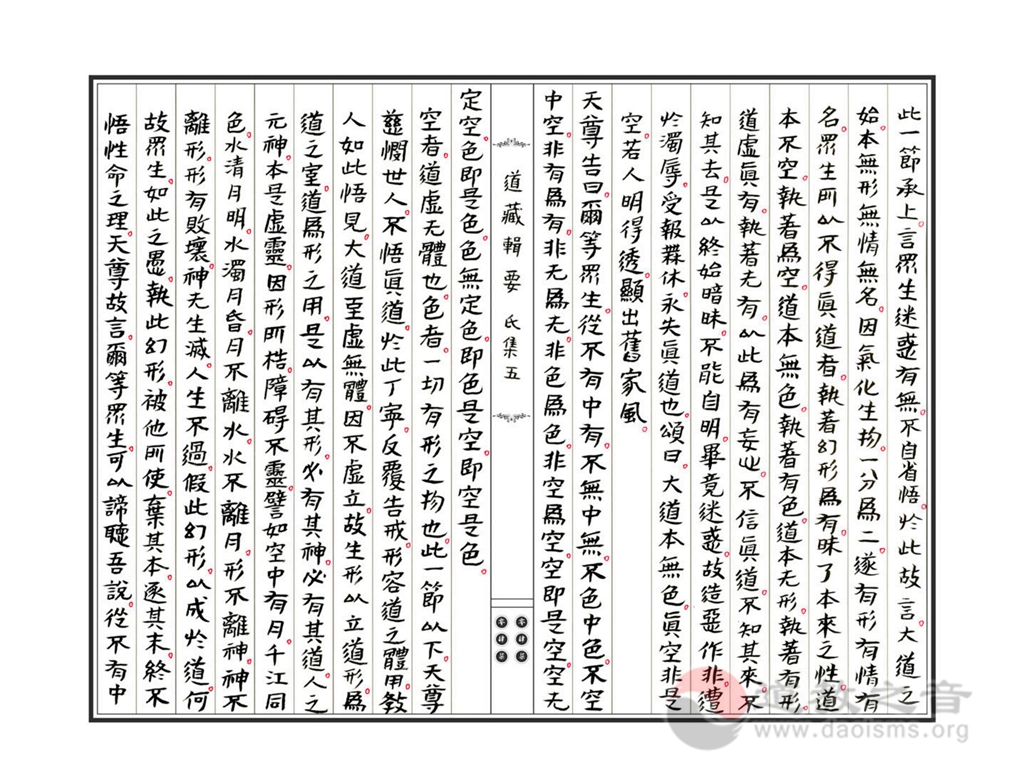 此一節承上。言眾生迷惑有無。不自省悟。於此故言。大道之
始。本無形無情無名。因氣化生物。一分爲二。遂有形有情有
名。眾生所以不得眞道者。執著幻形爲有。昧了本來之性。道
本不空。執著爲空。道本無色。執著有色。道本无形。執著有形。
道虛眞有。執著无有。以此爲有妄心。不信眞道。不知其來。不
知其去。是以終始暗昧。不能自明。畢竟迷惑。故造惡作非。遭
於濁辱。受報無休。永失眞道也。頌曰。大道本無色。眞空非是
空。若人明得透。顯出舊家風。
天尊告曰。爾等眾生。從不有中有。不無中無。不色中色。不空
中空。非有爲有。非无爲无。非色爲色。非空爲空。空即是空。空无
道藏輯要 氐集五
定空。色即是色。色無定色。即色是空。即空是色。
空者。道虛无體也。色者。一切有形之物也。此一節以下。天尊
慈憫世人。不悟眞道。於此丁寧。反覆告戒。形容道之體用。教
人如此悟見。大道至虛無體。因不虛立。故生形以立道。形爲
道之室。道爲形之用。是以有其形。必有其神。必有其道。人之
元神。本是虛靈。因形所梏。障碍不靈。譬如空中有月。千江同
色。水清月明。水濁月昏。月不離水。水不離月。形不離神。神不
離形。形有敗壞。神无生滅。人生不過。假此幻形。以成於道。何
故眾生。如此之愚。執此幻形。被他所使。棄其本。逐其末。終不
悟性命之理。天尊故言。爾等眾生。可以諦聽吾說。從不有中
道教之音
www.daoisms.org